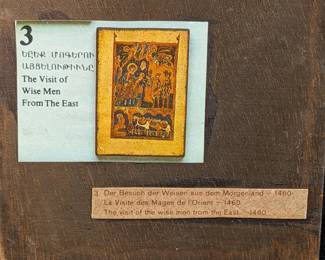 3
ԵՐԵՔ ՄՈԳԵՐՈՒ
ԱՅՑԵԼՈՒԹԻՒՆԸ
The Visit of
Wise Men
From The East
3. Der Besuch der Weisen aus dem Morgenland - 1460
La Visite des Mages de l'Orient - 1460
The visit of the wise men from the East. - 1460